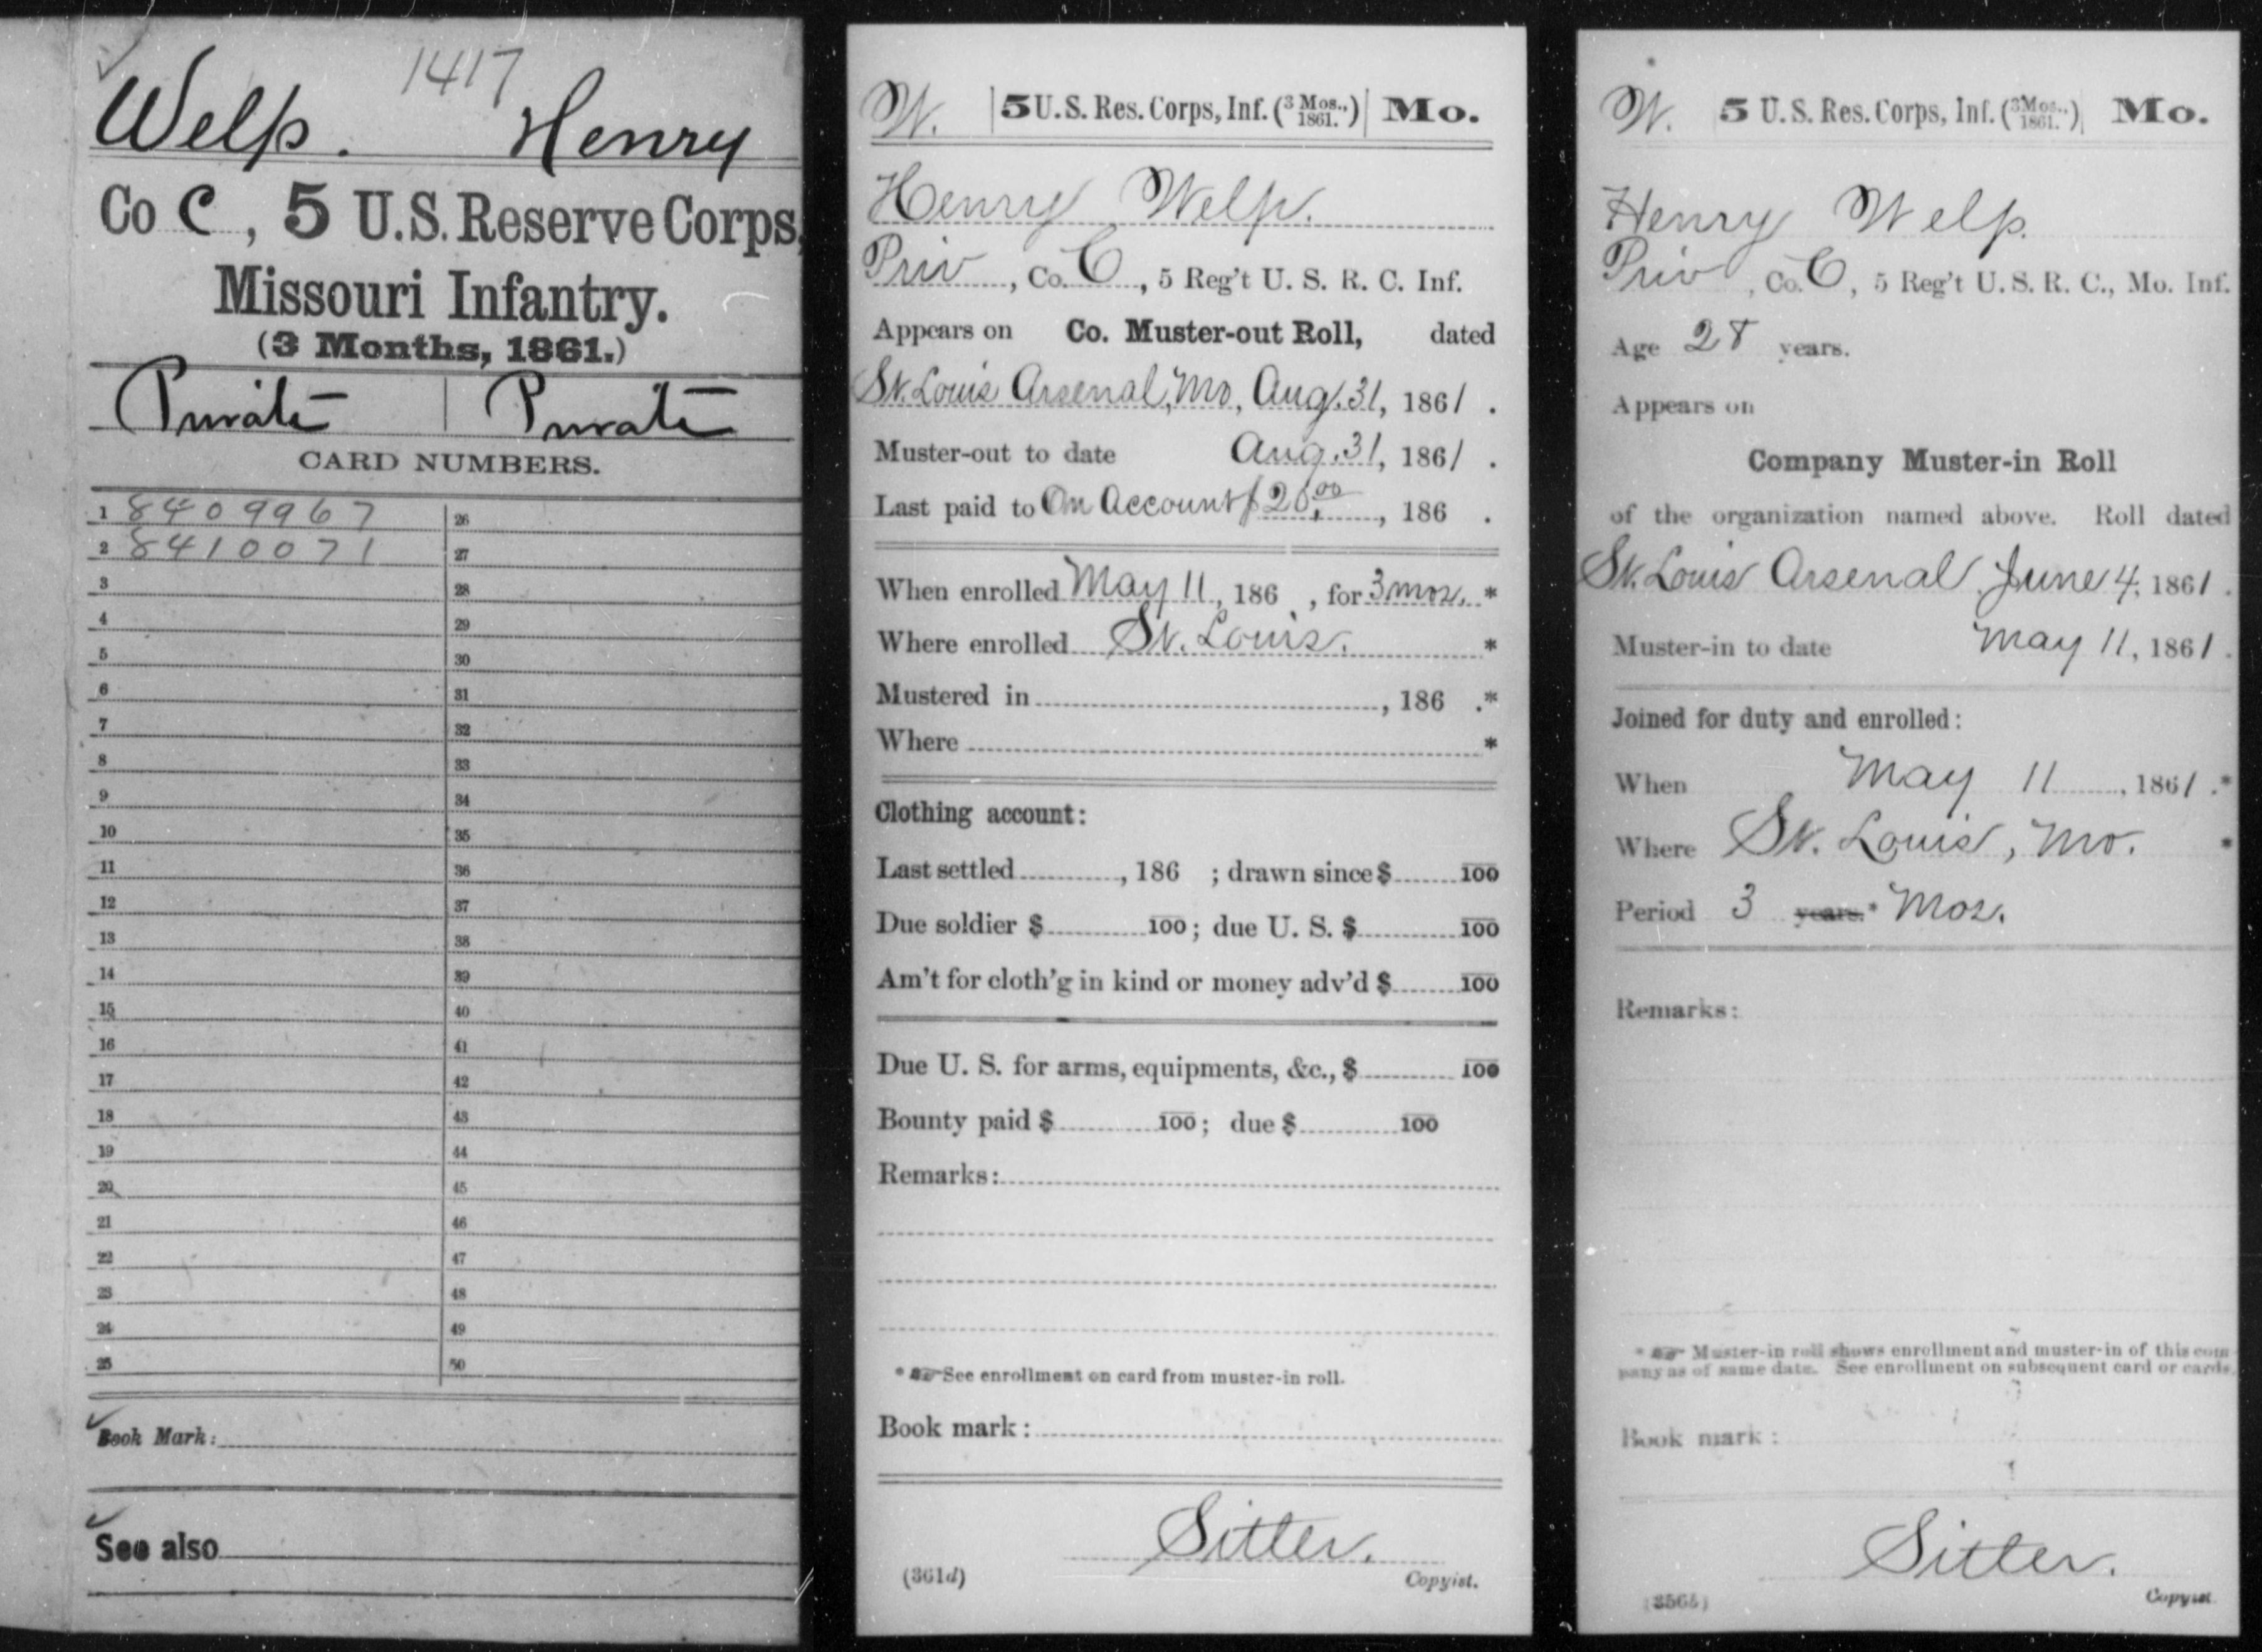 1417
Welp. Henry
Co C, 5 U.S. Reserve Corps,
Missouri Infantry.
(3 Months, 1861.)
Private Private
CARD NUMBERS.
1 8409967 26
2 8410071 27
3 28
4 29
5 30
6 31
7 32
8 33
9 34
10 35
11 36
12 37
13 38
14 39
15 40
16 41
17 42
18 43
19 44
20 45
21 46
22 47
23 48
24 49
25 50
Book Mark:
See also
W. 5 U.S. Res. Corps, Inf. (3 Mos., 1861.) Mo.
Henry Welp.
Priv, Co. C, 5 Reg't U. S. R. C. Inf.
Appears on Co. Muster-out Roll, dated
St. Louis Arsenal, Mo, Aug. 31, 1861.
Muster-out to date Aug. 31, 1861.
Last paid to On Account $20.00, 186 .
When enrolled May 11, 186 , for 3 mos. *
Where enrolled St. Louis. *
Mustered in , 186 .*
Where *
Clothing account:
Last settled , 186 ; drawn since $ 100
Due soldier $ 100; due U. S. $ 100
Am't for cloth'g in kind or money adv'd $ 100
Due U. S. for arms, equipments, &c., $ 100
Bounty paid $ 100; due $ 100
Remarks:
* See enrollment on card from muster-in roll.
Book mark:
Sitler.
(361d) Copyist.
W. 5 U.S. Res. Corps, Inf. (3 Mos., 1861.) Mo.
Henry Welp.
Priv, Co. C, 5 Reg't U. S. R. C., Mo. Inf.
Age 28 years.
Appears on
Company Muster-in Roll
of the organization named above. Roll dated
St. Louis Arsenal June 4, 1861.
Muster-in to date May 11, 1861.
Joined for duty and enrolled:
When May 11, 1861.*
Where St. Louis, Mo. *
Period 3 years.* Mos.
Remarks:
* Muster-in roll shows enrollment and muster-in of this com-
pany as of same date. See enrollment on subsequent card or cards.
Book mark:
Sitler.
Copyist.